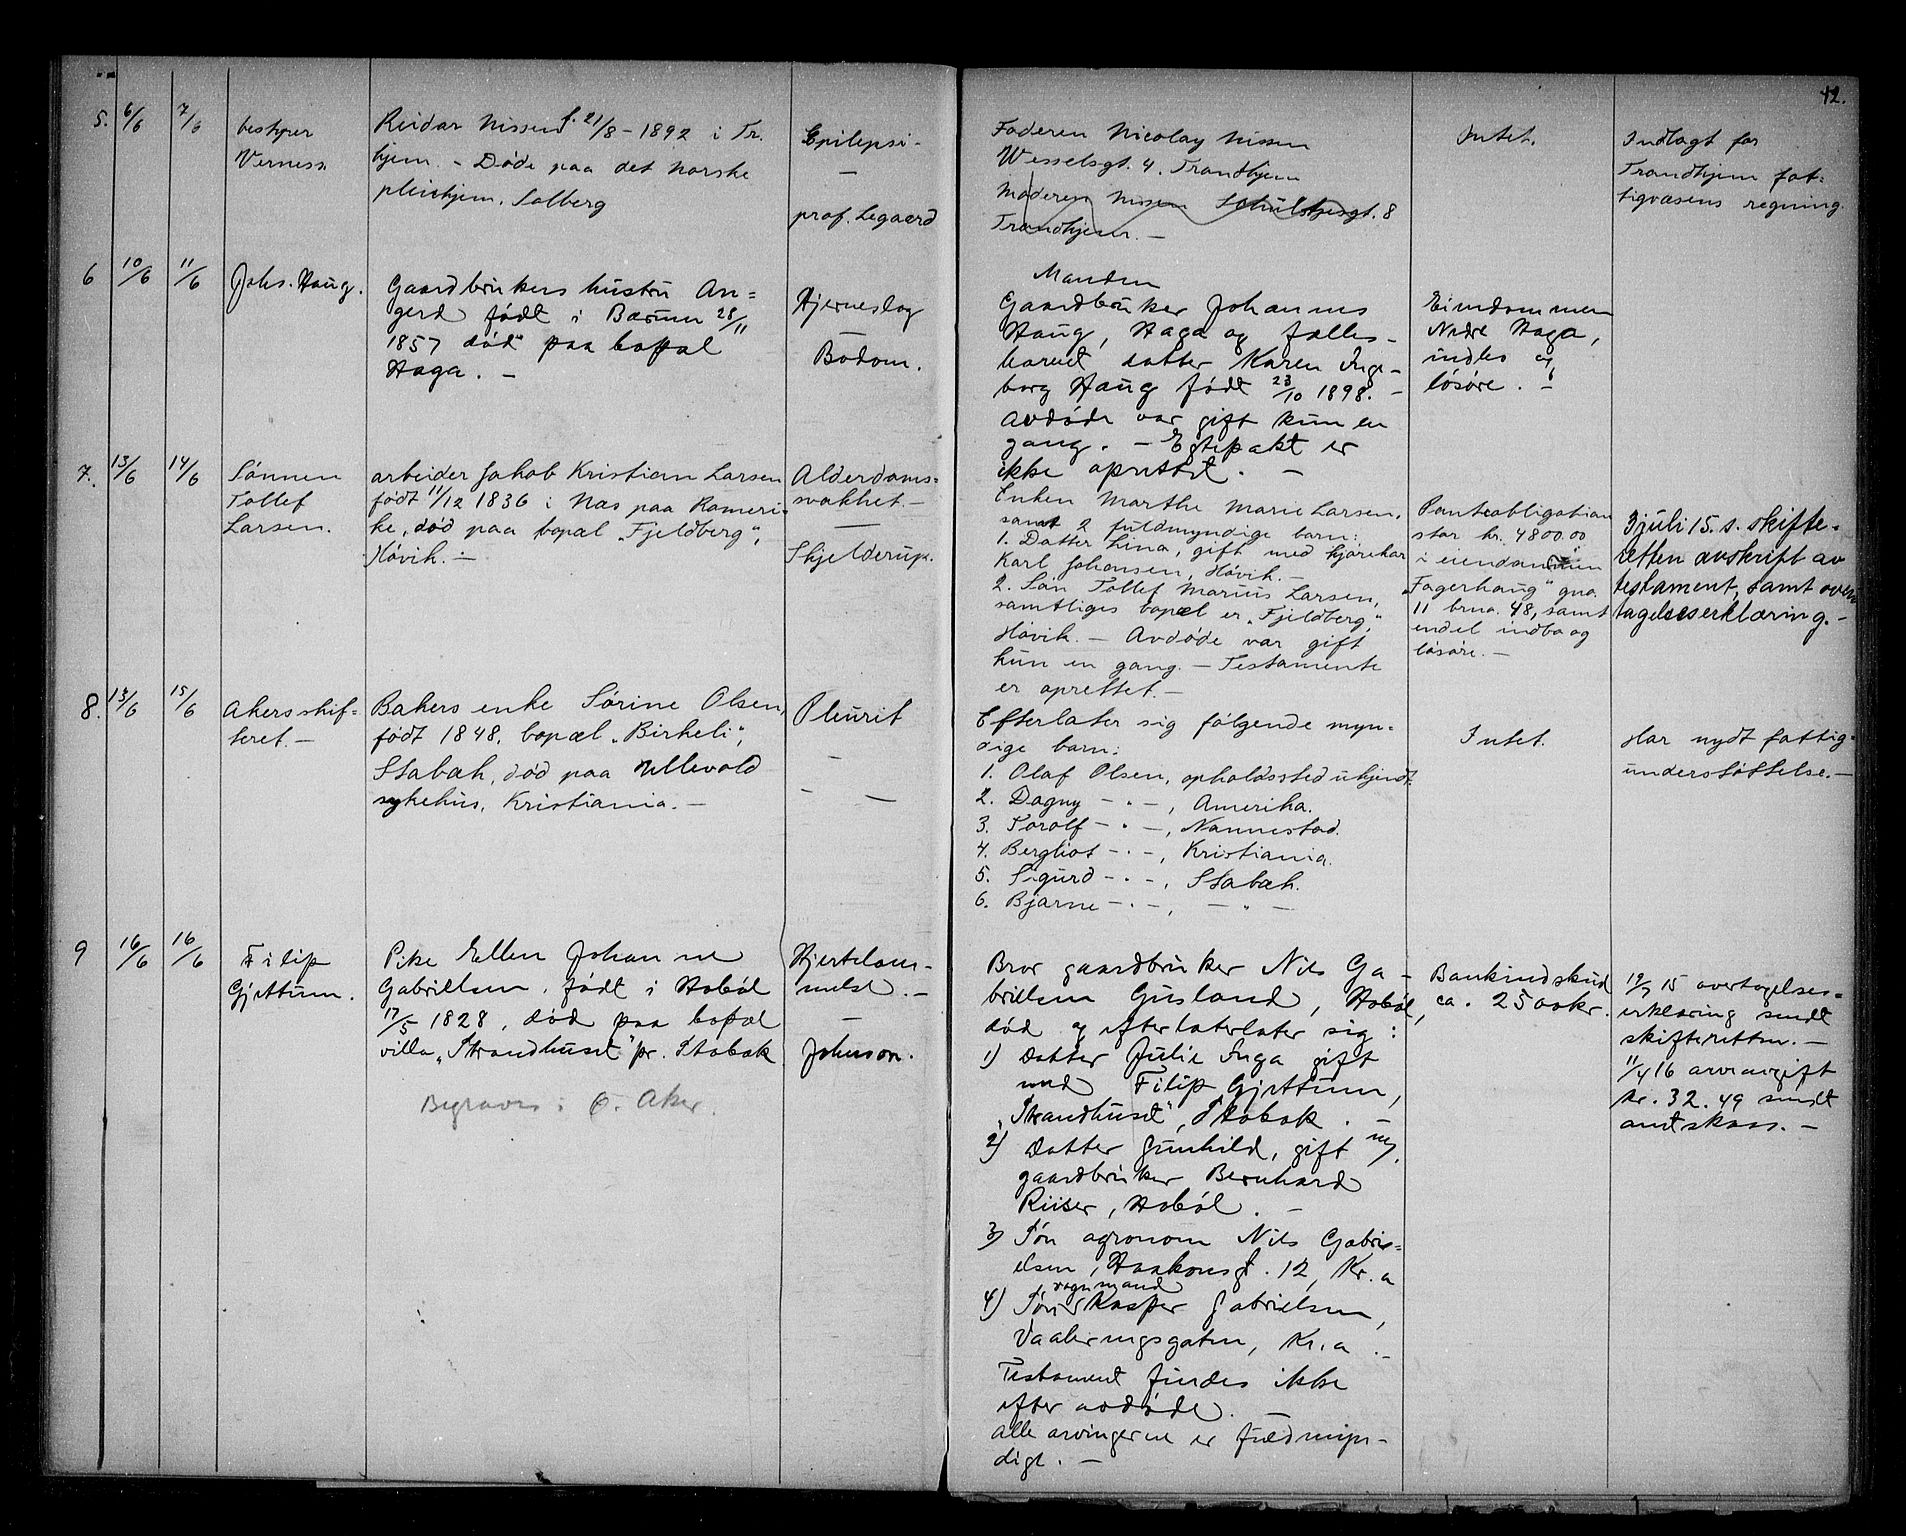 42.
5. 6/6 7/6
bestyrer
Verness.
Reidar Nissen f. 21/8 - 1892 i Tr.
hjem. - Døde paa det norske
pleiehjem. Solberg
Epilepsi -
—
prof. Legaard
Faderen Nicolay Nissen
Wesselsgt. 4. Trondhjem
Moderen Nissen Schulthesgt. 8
Trondhjem. —
Intet.
Indlagt for
Trondhjem fat-
tigvæsens regning.
6 10/6 11/6
Johs. Haug.
Gaardbrukers hustru An=
gerd født i Bærum 28/11
1857 død paa bopæl
Haga. —
Hjerneslag
Bødom.
Manden
Gaardbruker Johannes
Haug, Haga og fælles-
barnet datter Karen Inge-
borg Haug født 23/10 1898. -
Avdøde var gift kun en
gang. - Egtepakt er
ikke oprettet. —
Eiendommen
Nedre Haga,
indbo og
løsøre. -
7. 13/6 14/6
Sønnen
Tollef
Larsen.
arbeider Jakob Kristian Larsen
født 11/12 1836 i Næs paa Romeri-
ke, død paa bopæl „Fjeldberg",
Høvik. —
Alderdoms=
svakhet. -
—
Skjelderup.
Enken Marthe Marie Larsen.
samt 2 fuldmyndige barn:
1. Datter Lina, gift med kjørekar
Karl Johansen, Høvik. -
2. Søn Tollef Marius Larsen,
samtliges bopæl er „Fjeldberg",
Høvik. - Avdøde var gift
kun en gang. - Testamente
er oprettet. -
Panteobligation
stor kr. 4800.00
i eiendommen
„Fagerhaug" gno.
11 brno. 48, samt
endel indbo og
løsøre. -
3 juli 15. s. skifte-
retten avskrift av
testament, samt over
tagelseserklæring. -
8. 13/6 15/6
Akersskif=
teret. -
Bakers enke Sørine Olsen,
født 1848, bopæl „Birkeli",
Stabæk, død paa Ullevold
sykehus, Kristiania. -
Pleurit
-
- —
Efterlater sig følgende myn-
dige barn:
1. Olaf Olsen, opholdssted ukjendt.
2. Dagny - " -, Amerika.
3. Torolf - " -, Nannestad.
4. Bergliot - " -, Kristiania.
5. Sigurd - " -, Stabæk.
6. Bjarne - " -, — " —
Intet.
Har nydt fattig=
understøttelse. -
9 16/6 16/6
Filip
Gjettum.
Pike Ellen Johanne
Gabrielsen, født i Hobøl
17/5 1828, død paa bopæl
villa „Strandhuset" pr. Stabæk
Begraves i Ø. Aker.
Hjertelam-
melse. -
—
Johnson.
Bror gaardbruker Nils Ga-
brielsen Gusland, Hobøl,
død og efterlaterlater sig:
1) Datter Julie Inga gift
med Filip Gjettum,
„Strandhuset", Stabæk. -
2) Datter Gunhild, gift m/
gaardbruker Bernhard
Riiser, Hobøl. -
3) Søn agronom Nils Gabri=
elsen, Haakonsgt. 12, Kr.a
4) Søn vognmand Kasper Gabrielsen,
Vaalerengsgaten, Kr.a. -
Testament findes ikke
efter avdøde. —
Alle arvingerne er fuldmyn-
dige. —
Bankindskud
ca. 2500 kr.
19/7 15 overtagelses=
erklæring sendt
skifteretten. -
11/4 16 arveavgift
kr. 32.49 sendt
amtskass. -